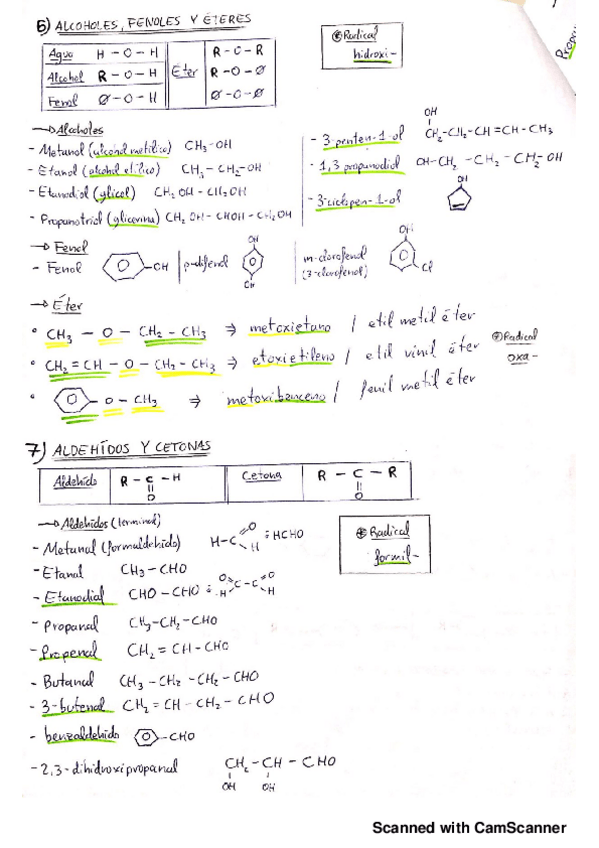 6) ALCOHOLES, FENOLES Y ÉTERES
Agua H - O - H
Alcohol R - O - H
Fenol Ø - O - H
Éter
R - O - R
R - O - Ø
Ø - O - Ø
* Radical
hidroxi-
→ Alcoholes
- Metanol (alcohol metílico) CH3-OH
- Etanol (alcohol etílico) CH3-CH2-OH
- Etanodiol (glicol) CH2OH-CH2OH
- Propanotriol (glicerina) CH2OH-CHOH-CH2OH
- 3-penten-1-ol OH CH2-CH2-CH=CH-CH3
- 1,3 propanodiol OH-CH2-CH2-CH2-OH
- 3-ciclopen-1-ol OH
→ Fenol
- Fenol OH
p-difenol OH OH
m-clorofenol
(3-clorofenol) OH Cl
→ Éter
• CH3 - O - CH2 - CH3 ⇒ metoxietano / etil metil éter
• CH2=CH - O - CH2 - CH3 ⇒ etoxietileno / etil vinil éter
• O - CH3 ⇒ metoxibenceno / fenil metil éter
* Radical
oxa-
7) ALDEHÍDOS Y CETONAS
Aldehído R - C - H
O
Cetona R - C - R
O
→ Aldehídos (terminal)
- Metanal (formaldehido) H-C O H : HCHO
- Etanal CH3-CHO
- Etanodial CHO-CHO : O H C-C O H
- Propanal CH3-CH2-CHO
- Propenal CH2=CH-CHO
- Butanal CH3-CH2-CH2-CHO
- 3-butenal CH2=CH-CH2-CHO
- benzaldehido CHO
- 2,3-dihidroxipropanal CH2-CH-CHO
OH OH
* Radical
formil-
Scanned with CamScanner